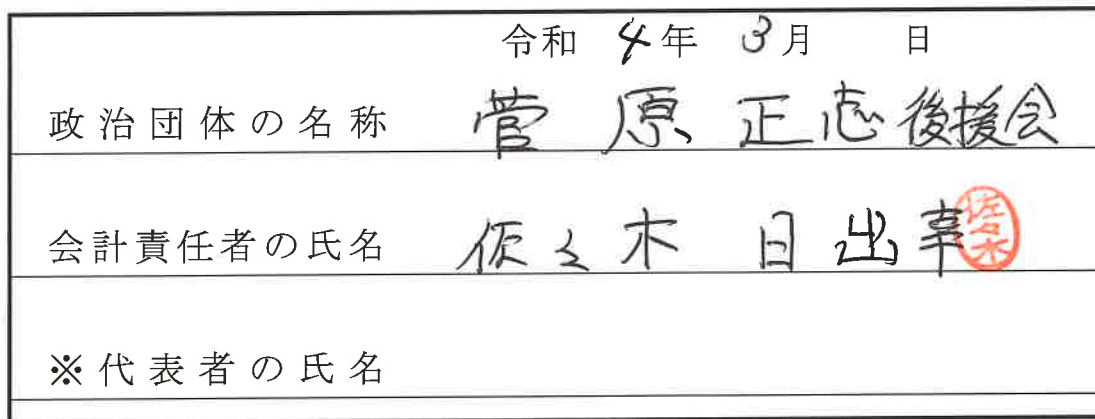 令和 4年 3月 日
政治団体の名称 菅原正志後援会
会計責任者の氏名 佐々木 日出幸 佐々木
※代表者の氏名